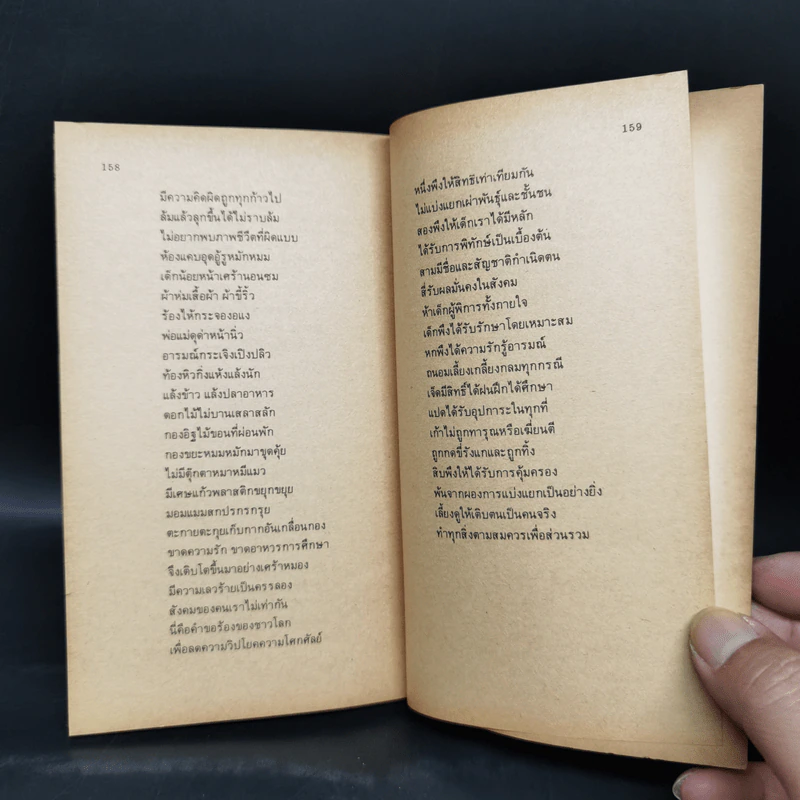 158
มีความคิดผิดถูกทุกก้าวไป
ล้มแล้วลุกขึ้นได้ไม่ราบล้ม
ไม่อยากพบภาพชีวิตที่ผิดแบบ
ห้องแคบอุดอู้รูหมักหมม
เด็กน้อยหน้าเศร้านอนซม
ผ้าห่มเสื้อผ้า ผ้าขี้ริ้ว
ร้องไห้กระจองอแง
พ่อแม่ดุด่าหน้านิ่ว
อารมณ์กระเจิงเปิงปลิว
ท้องหิวกิ่งแห้งแล้งนัก
แล้งข้าว แล้งปลาอาหาร
ดอกไม้ไม่บานเสลาสลัก
กองอิฐไม้ขอนที่ผ่อนพัก
กองขยะหมมหมักมาขุดคุ้ย
ไม่มีตุ๊กตาหมาหมีแมว
มีเศษแก้วพลาสติกขยุกขยุย
มอมแมมสกปรกรกรุย
ตะกายตะกุยเก็บกากอันเกลื่อนกอง
ขาดความรัก ขาดอาหารการศึกษา
จึงเติบโตขึ้นมาอย่างเศร้าหมอง
มีความเลวร้ายเป็นครรลอง
สังคมของคนเราไม่เท่ากัน
นี่คือคำขอร้องของชาวโลก
เพื่อลดความวิปโยคความโศกศัลย์
159
หนึ่งพึงให้สิทธิเท่าเทียมกัน
ไม่แบ่งแยกเผ่าพันธุ์และชั้นชน
สองพึงให้เด็กเราได้มีหลัก
ได้รับการพิทักษ์เป็นเบื้องต้น
สามมีชื่อและสัญชาติกำเนิดตน
สี่รับผลมั่นคงในสังคม
ห้าเด็กผู้พิการทั้งกายใจ
เด็กพึงได้รับรักษาโดยเหมาะสม
หกพึงได้ความรักรู้อารมณ์
ถนอมเลี้ยงเกลี้ยงกลมทุกกรณี
เจ็ดมีสิทธิ์ได้ฝนฝึกได้ศึกษา
แปดได้รับอุปการะในทุกที่
เก้าไม่ถูกทารุณหรือเฆี่ยนตี
ถูกกดขี่รังแกและถูกทิ้ง
สิบพึงให้ได้รับการคุ้มครอง
พ้นจากผองการแบ่งแยกเป็นอย่างยิ่ง
เลี้ยงดูให้เติบตนเป็นคนจริง
ทำทุกสิ่งตามสมควรเพื่อส่วนรวม